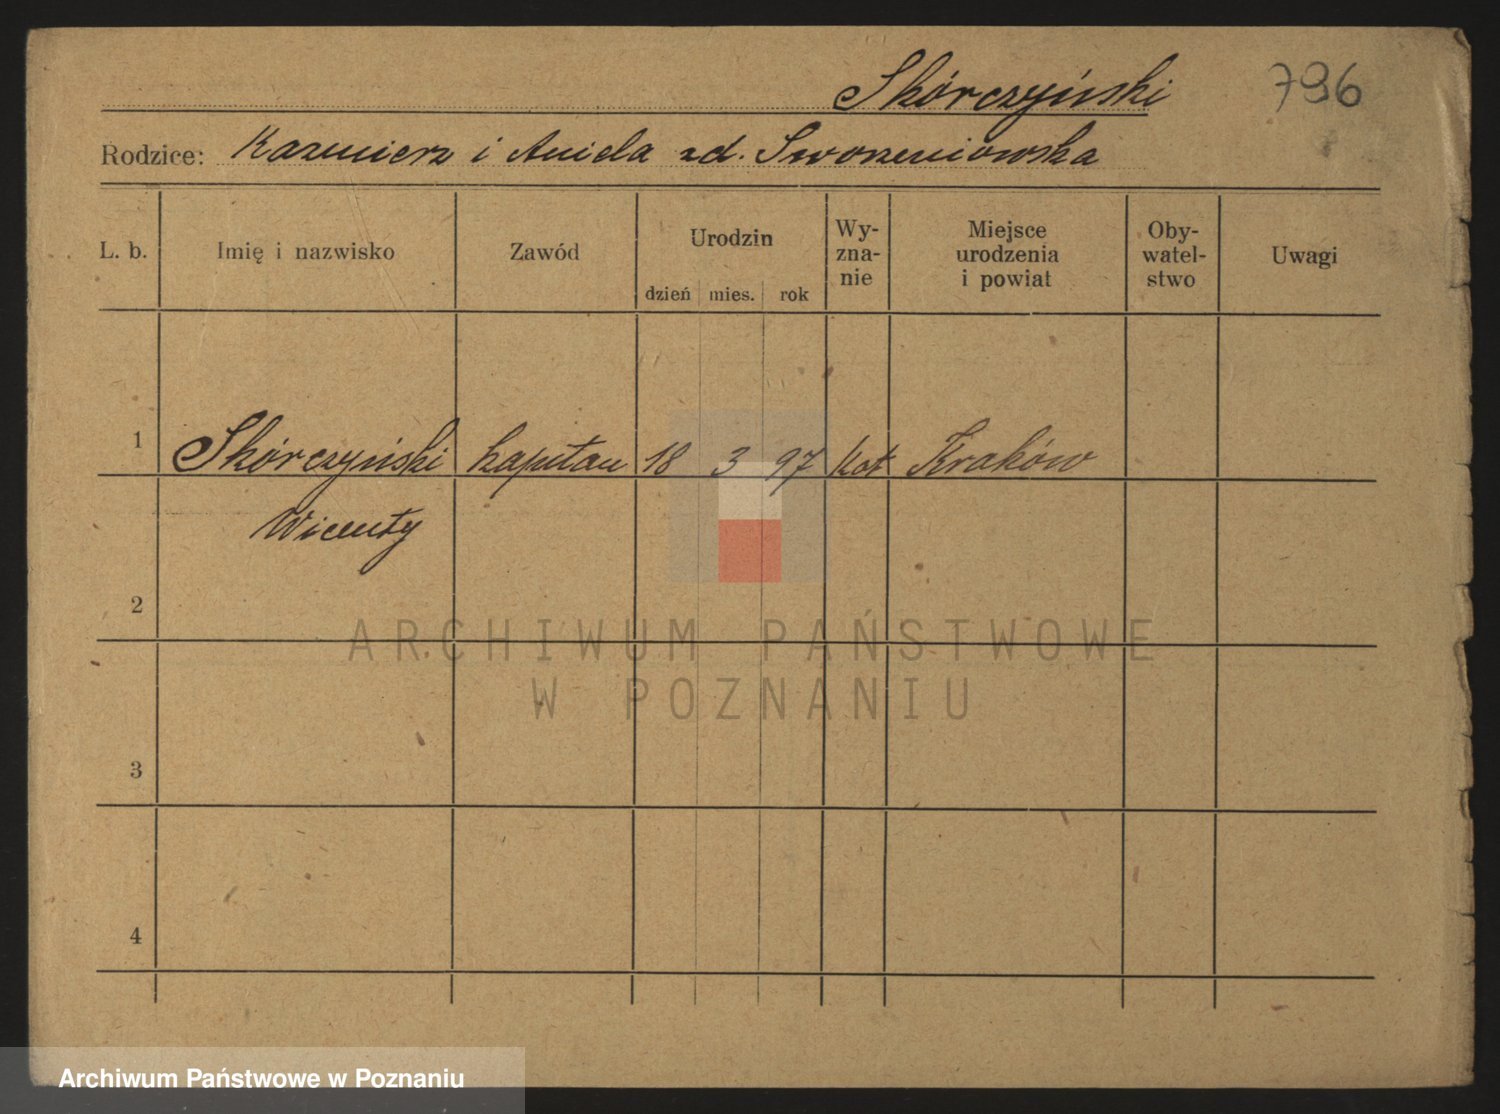 Skórczyński 796
Rodzice: Kazmierz i Aniela zd. Sworzeniowska
L. b. Imię i nazwisko Zawód Urodzin Wy-zna-nie Miejsce urodzenia i powiat Oby-watel-stwo Uwagi
dzień mies. rok
1 Skórczyński kapitan 18 3 97 kat Kraków
Wicenty
2
ARCHIWUM PAŃSTWOWE
W POZNANIU
3
4
Archiwum Państwowe w Poznaniu